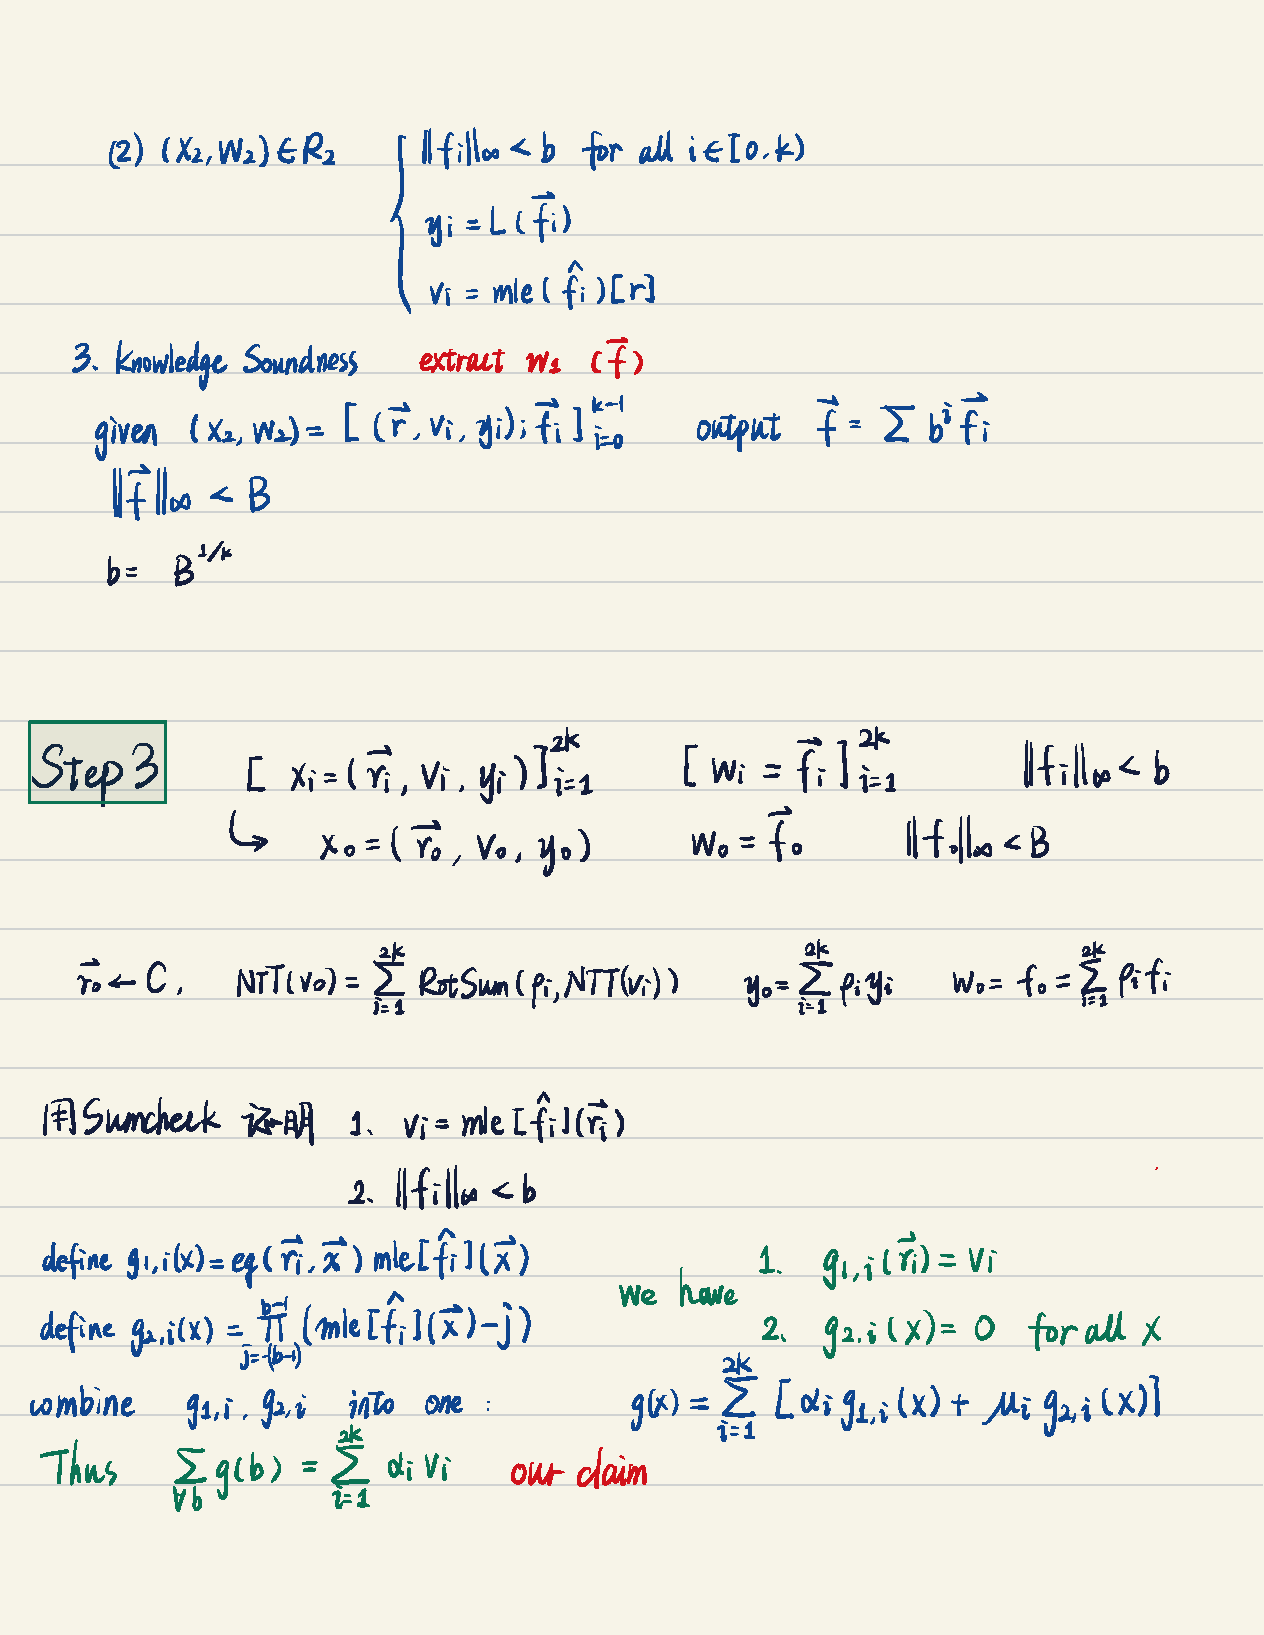 (2) (x₂, w₂) ∈ R₂ { ‖fᵢ‖∞ < b for all i ∈ [0, k)
yᵢ = L(f⃗ᵢ)
vᵢ = mle(f̂ᵢ)[r]
3. Knowledge Soundness extract w₁ (f⃗)
given (x₂, w₂) = [(r⃗, vᵢ, yᵢ); f⃗ᵢ]_{i=0}^{k-1} output f⃗ = Σ bⁱ f⃗ᵢ
‖f⃗‖∞ < B
b = B^{1/k}
Step 3 [xᵢ = (r⃗ᵢ, vᵢ, yᵢ)]_{i=1}^{2k} [wᵢ = f⃗ᵢ]_{i=1}^{2k} ‖fᵢ‖∞ < b
↳ x₀ = (r⃗₀, v₀, y₀) w₀ = f⃗₀ ‖f₀‖∞ < B
r⃗₀ ← C, NTT(v₀) = Σ_{i=1}^{2k} RotSum(ρᵢ, NTT(vᵢ)) y₀ = Σ_{i=1}^{2k} ρᵢyᵢ w₀ = f₀ = Σ_{i=1}^{2k} ρᵢfᵢ
用Sumcheck 证明 1. vᵢ = mle[f̂ᵢ](r⃗ᵢ)
2. ‖fᵢ‖∞ < b
define g₁,ᵢ(x) = eq(r⃗ᵢ, x⃗) mle[f̂ᵢ](x⃗)
we have 1. g₁,ᵢ(r⃗ᵢ) = vᵢ
define g₂,ᵢ(x) = Π_{j=-(b-1)}^{b-1} (mle[f̂ᵢ](x⃗) - j)
2. g₂,ᵢ(x) = 0 for all x
combine g₁,ᵢ, g₂,ᵢ into one : g(x) = Σ_{i=1}^{2k} [αᵢ g₁,ᵢ(x) + μᵢ g₂,ᵢ(x)]
Thus Σ_{∀b} g(b) = Σ_{i=1}^{2k} αᵢ vᵢ our claim